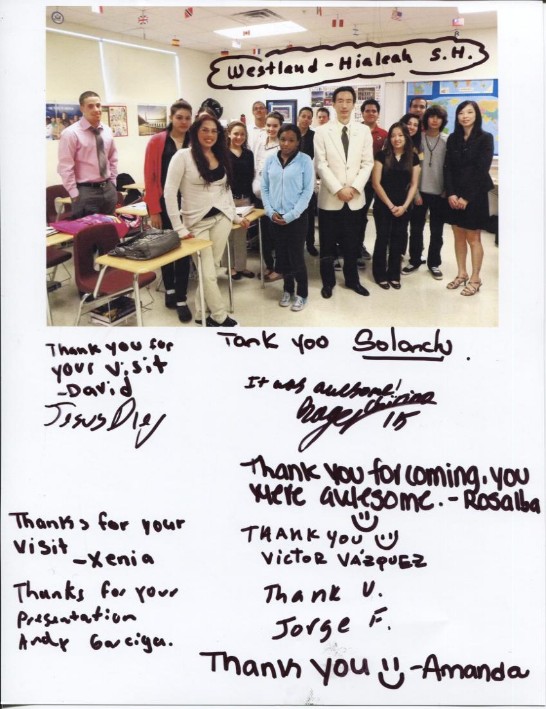 Westland-Hialeah S.H.
Thank you for
your visit
-David
Tank yoo Solanch.
It was awesome!
15
Thank you for coming, you
were awesome. -Rosalba
Thanks for your
visit
-Xenia
THANK you
VICTOR VÁZQUEZ
Thanks for your
Presentation
Andy
Thank U.
Jorge F.
Thank you -Amanda